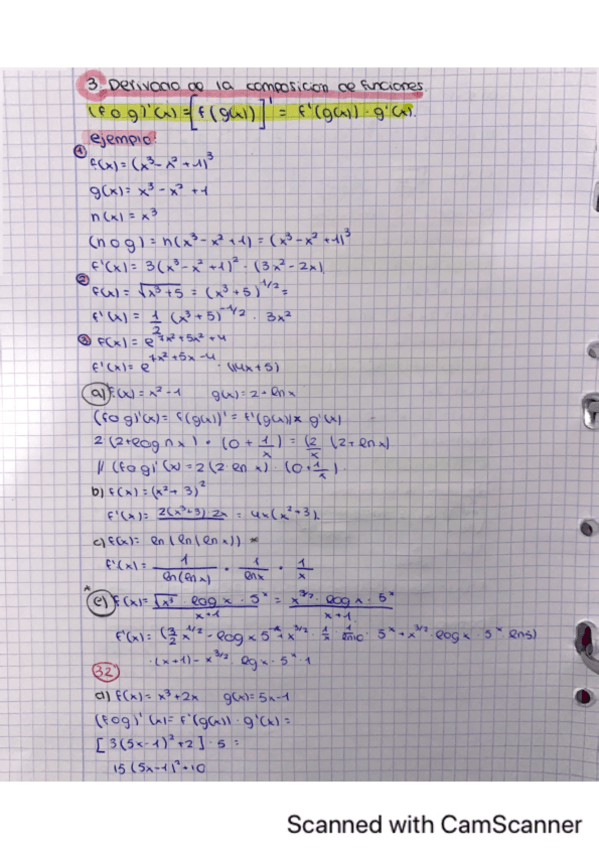 3. Derivada de la composicion de funciones
(f o g)'(x) = [f(g(x))]' = f'(g(x)) · g'(x).
ejemplo:
① f(x) = (x³ - x² + 1)³
g(x) = x³ - x² + 1
n(x) = x³
(n o g) = n(x³ - x² + 1) = (x³ - x² + 1)³
f'(x) = 3(x³ - x² + 1)² · (3x² - 2x)
② f(x) = √x³+5 = (x³ + 5)^1/2 =
f'(x) = 1/2 (x³ + 5)^-1/2 · 3x²
③ f(x) = e^7x²+5x²+4
f'(x) = e^7x²+5x-4 · (14x + 5)
a) f(x) = x² - 1 g(x) = 2 + ln x
(f o g)'(x) = f(g(x))' = f'(g(x)) x g'(x)
2 (2 + log n x) · (0 + 1/x) = (2/x (2 + ln x)
// (f o g)'(x) = 2 (2 ln x) · (0 + 1/x)
b) f(x) = (x² + 3)²
f'(x) = 2(x²+3) 2x = 4x (x² + 3)
c) f(x) = ln (ln (ln x))
f'(x) = 1/ln(ln x) · 1/ln x · 1/x
e) f(x) = √x³ · log x · 5ˣ / x+1 = x^3/2 · log x · 5ˣ / x+1
f'(x) = (3/2 x^1/2 - log x 5ˣ + x^3/2 · 1/x · 1/ln10 · 5ˣ + x^3/2 · log x · 5ˣ ln5)
· (x+1) - x^3/2 lgx · 5ˣ · 1
32
a) f(x) = x³ + 2x g(x) = 5x - 1
(f o g)'(x) = f'(g(x)) · g'(x) =
[3(5x-1)² + 2] · 5 =
15 (5x-1)² + 10
Scanned with CamScanner